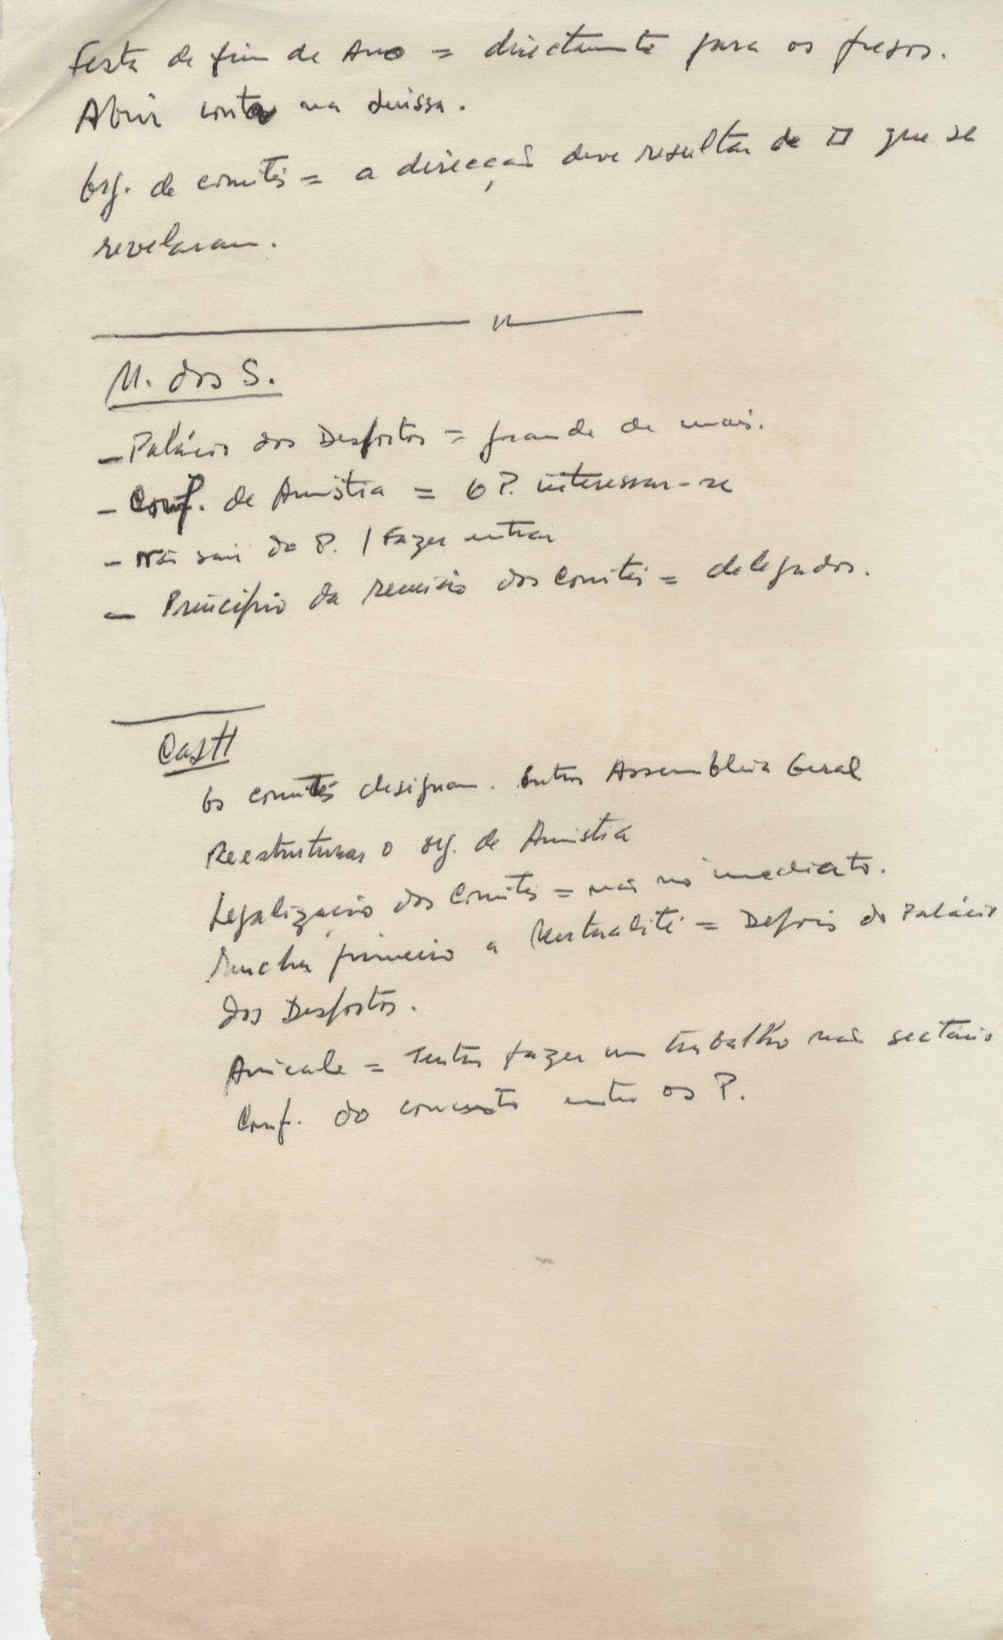 Festa de fim de Ano = directamente para os presos.
Abrir conta na Suissa.
Org. de comités = a direcção deve resultar de □ que se
revelaram.
M. dos S.
- Palácio dos Desportos = grande de mais.
- Conf. de Amnistia = o P. interessar-se
- Não sair do P. / Fazer entrar
- Princípio da reunião dos Comités = delegados.
Os comités designam. Outra Assembleia Geral
Reestruturar o org. de Amnistia
Legalização dos Comités = não no imediato.
primeiro a Mutualité = Depois do Palácio
dos Desportos.
Amicale = Tentar fazer um trabalho não sectário
Conf. do concerto entre os P.